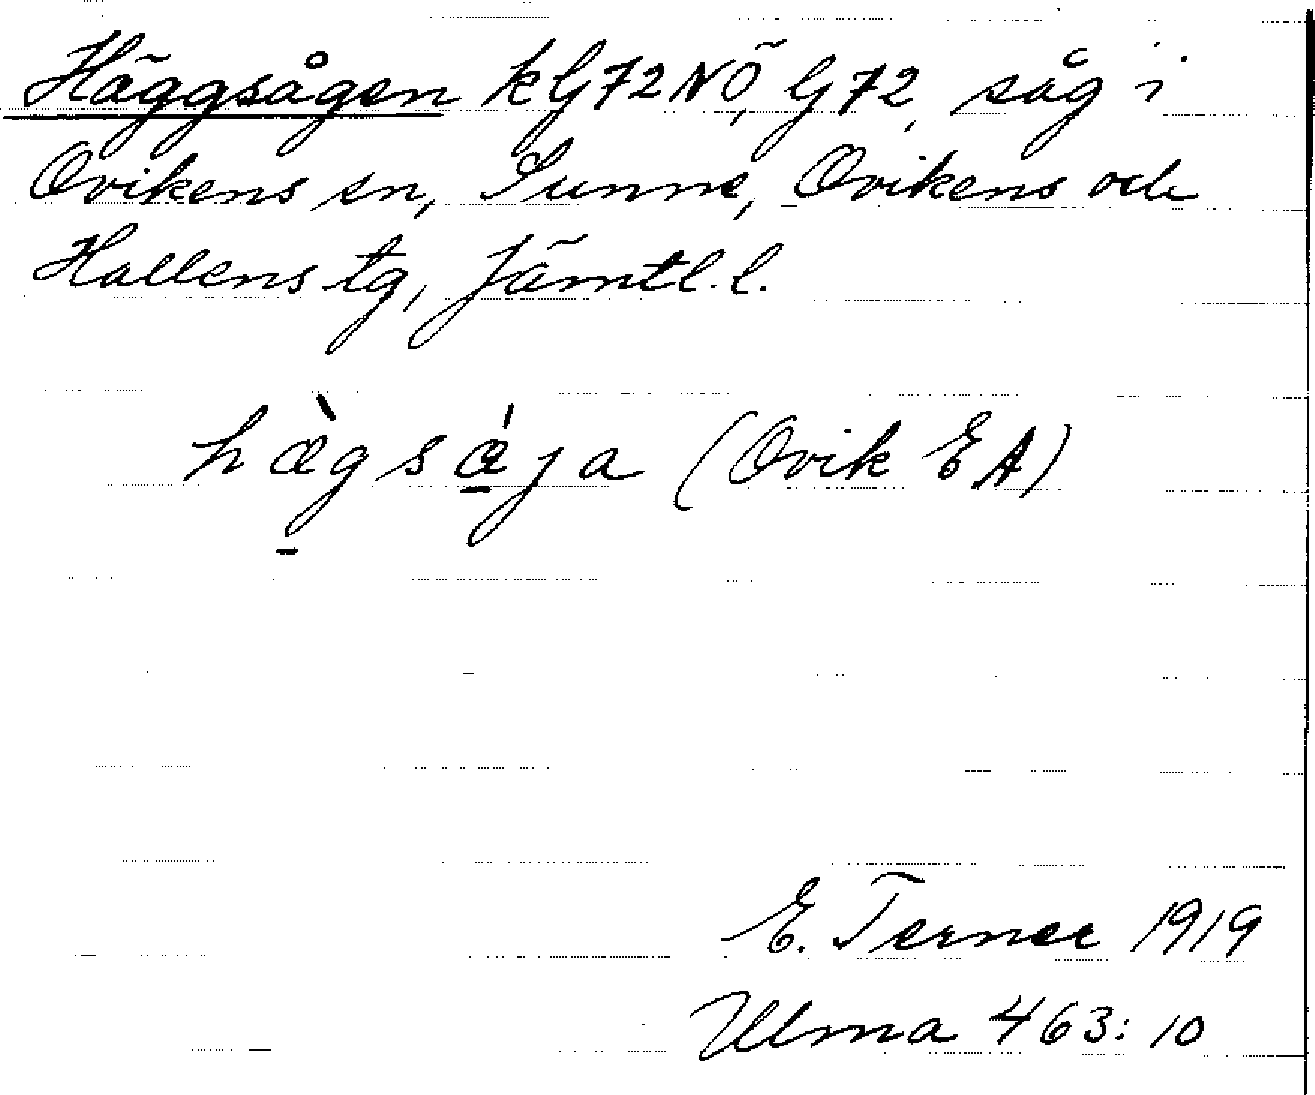 Häggsågen kG72NÖ, G72, såg i
Ovikens sn, Sunne, Ovikens och
Hallens tg, Jämtl. l.
hæ̀g̱sǽ̱ja (Ovik EA)
E. Terner 1919
Ulma 463:10